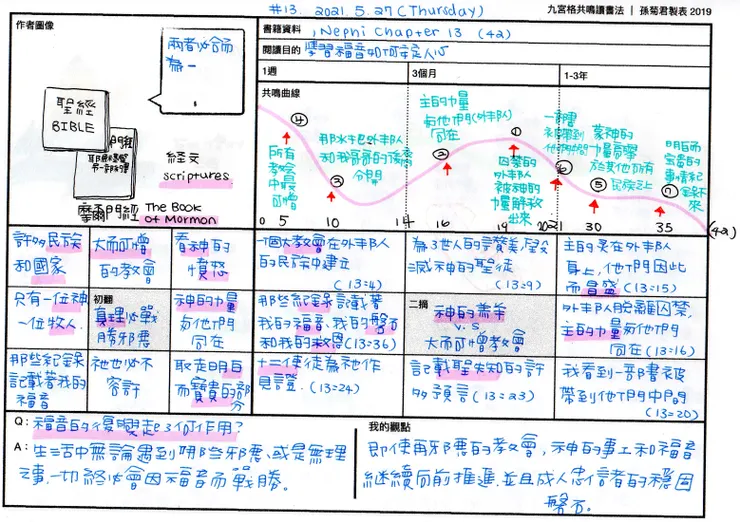 #13. 2021. 5. 27 (Thursday)
九宮格共鳴讀書法 | 孫菊君製表 2019
作者圖像
兩者必合而
為一
聖經
BIBLE
經文
scriptures
摩爾門經 The Book
of Mormon
書籍資料 1 Nephi Chapter 13 (42)
閱讀目的 學習福音如何安定人心
1週
3個月
1-3年
共鳴曲線
④
所有
教會
中最
可憎
③
那水把外邦人
和我哥哥的後裔
分開
主的力量
與他們(外邦人)
同在
②
①
囚禁的
外邦人
被神的
力量解救
出來
一部書
⑥
蒙神的
力量高舉
於其他所有
民族之上
⑤
明白而
寶貴的
事情紀
錄下來
⑦
0 5 10 14 16 19 30 35 (42)
許多民族
和國家
大而可憎
的教會
看神的
憤怒
一個大教會在外邦人
的民族中建立
(13:4)
為了世人的讚美,毀
滅神的聖徒
(13:9)
主的靈在外邦人
身上,他們因此
而昌盛 (13:15)
只有一位神
一位牧人
初翻
真理必戰
勝邪惡
神的力量
與他們
同在
那些紀錄記載著
我的福音、我的磐石
和我的救恩(13:36)
二摘
神的羔羊
v.s.
大而可憎教會
外邦人脫離囚禁,
主的力量與他們
同在(13:16)
那些紀錄
記載著我的
福音
祂也必不
容許
取走明白
而寶貴的部
分
十二使徒為祂作
見證. (13:24)
記載聖先知的許
多預言 (13:23)
我看到一部書被
帶到他們中間
(13:20)
Q: 福音的復興起了何作用?
A: 生活中無論遇到哪些邪惡、或是無理
之事,一切終必會因福音而戰勝。
我的觀點
即使再邪惡的教會,神的事工和福音
繼續向前推進,並且成人忠信者的穩固
磐石。